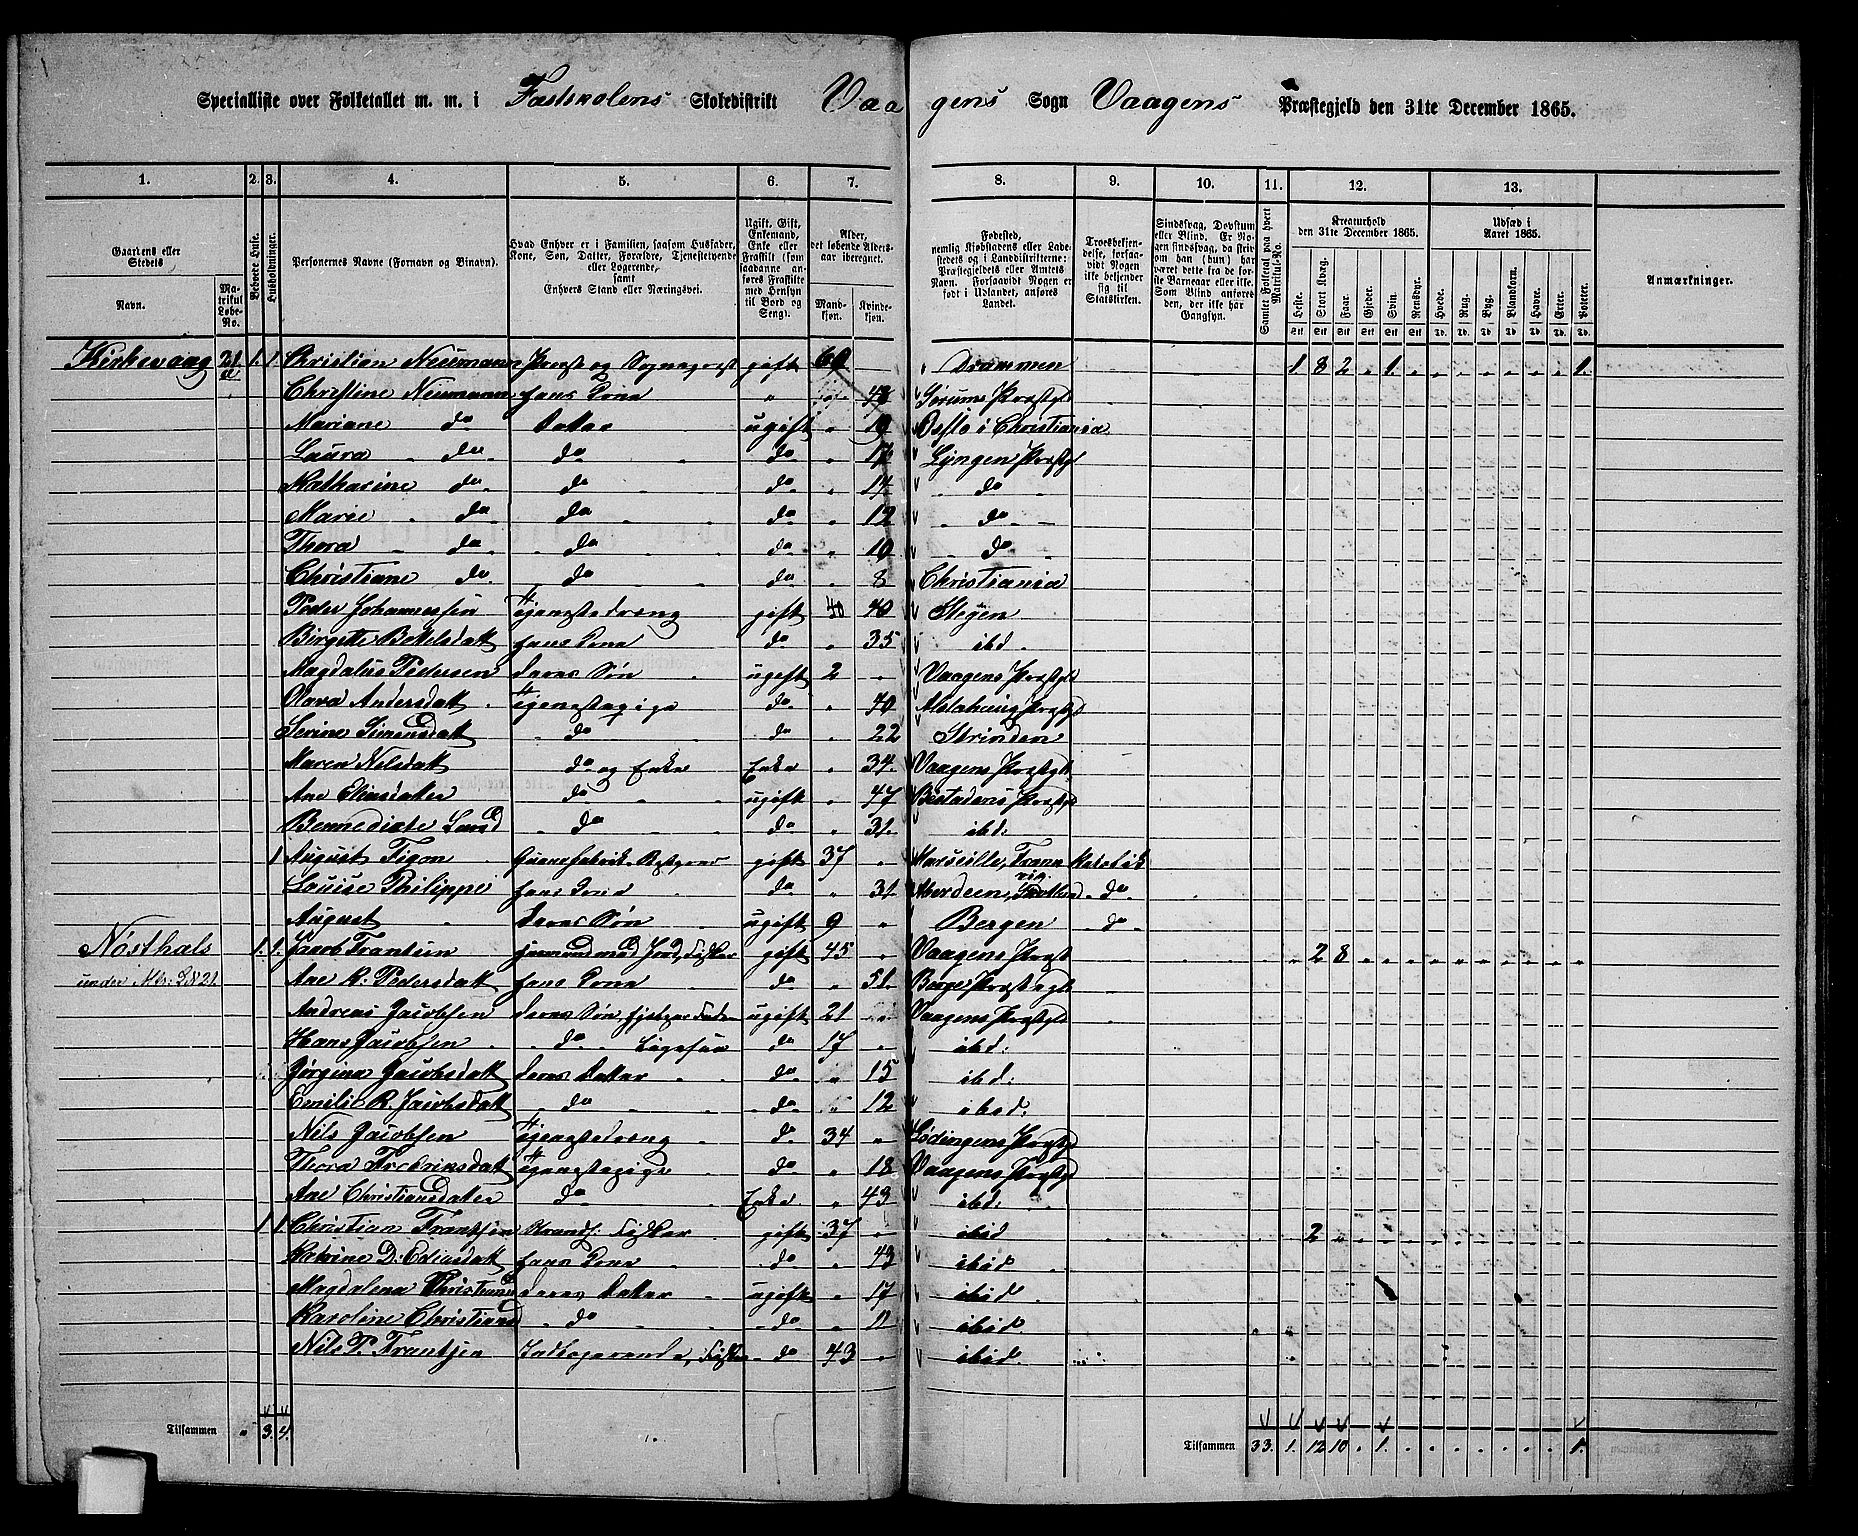 Specialliste over Folketallet m. m. i Fastskolens Skoledistrikt Vaagens Sogn Vaagens Præstegjeld den 31te December 1865.
1. 2. 3. 4. 5. 6. 7. 8. 9. 10. 11. 12. 13.
Gaardens eller Stedets
Navn.
Matrikul Løbe-No.
Beboede Huse.
Husholdninger.
Personernes Navne (Fornavn og Binavn).
Hvad Enhver er i Familien, saasom Husfader, Kone, Søn, Datter, Forældre, Tjenestetyende eller Logerende, samt Enhvers Stand eller Næringsvei.
Ugift, Gift, Enkemand, Enke eller Fraskilt (som saadanne anføres Fraskilte med Hensyn til Bord og Seng).
Alder, det løbende Alders-aar iberegnet.
Mandkjøn.
Kvindekjøn.
Fødested, nemlig Kjøbstadens eller Ladestedets og i Landdistrikterne: Præstegjeldets eller Amtets Navn. Forsaavidt Nogen er født i Udlandet, anføres Landet.
Troesbekjendelse, forsaavidt Nogen ikke bekjender sig til Statskirken.
Sindssvag, Døvstum eller Blind. Er Nogen sindssvag, da skrives om han (hun) har været dette fra de første Barneaar eller ikke. Som Blind anføres den, der ikke har Gangsyn.
Samlet Folketal paa hvert Matrikul-No.
Kreaturhold den 31te December 1865.
Heste. Stort Kvæg. Faar. Gjeder. Svin. Rensdyr.
Udsæd i Aaret 1865.
Hvede. Rug. Byg. Blandkorn. Havre. Erter. Poteter.
Anmærkninger.
Kirkevaag 21 a 1. 1. Christian Neumann Provst og Sognepræst gift 60 Drammen 1 8 2 „ 1. „ „ „ „ „ „ „ 1.
Christine Neumann hans Kone „ 43 Sørums Præstgl
Mariane do Datter ugift „ 19 Oslo i Christiania
Laura do do do „ 17 Lyngen Præstgl
Katharine do do do „ 14 do
Marie do do do „ 12 do
Thora do do do „ 10 do
Christiane do do do „ 8 Christiania
Peder Johannessen Tjenestedreng gift 40 40 Stegen
Birgitte Bertelsdatt hans Kone do „ 35 ibd.
Magdalus Pedersen deres Søn ugift 2 „ Vaagens Præstgl
Olava Andersdatt Tjenestepige do „ 70 Alstahaug Præstgl
Serine Simonsdatt do do „ 22 Strinden
Maren Nilsdatt do og Enke Enke „ 34. Vaagens Præstgl
Ane Eliasdatter do ugift „ 47 Præstgl
Bennedicte do do „ 31. ibd.
1 August Figon Guanofabrik-Bestyrer gift 37 „ Marseille, Frankrig Katolik
Louise Philippi hans Kone do „ 31. Aberdeen, Skotland do
August deres Søn ugift 9 „ Bergen do
Nøsthals 1. 1. Jacob Frantsen Husmand med Jord, Fisker gift 45 „ Vaagens Præst „ 2 8 „ „ „ „ „ „ „ „ „ „
under M. L: 21. Ane K. Pedersdatt hans Kone do „ 51. Borge Præstegl
Andreas Jacobsen deres Søn, hjelper Faderen ugift 21 „ Vaagens Præstgl
Hans Jacobsen do Ligesaa do 17 „ ibd:
Jørgina Jacobsdatt deres Datter do „ 15 ibd:
Emilie R. Jacobsdatt do do „ 12 ibid.
Nils Jacobsen Tjenestedreng do 34 „ Lødingens Præstgl
Thora Fredriksdatt Tjenestepige do „ 18 Vaagens Præstgl
Ane Christiansdatter do Enke „ 43 ibd:
1 1. Christian Frantsen Strands: Fisker gift 37 „ ibid 2 „
Katrine D: hans Kone do „ 43 ibid
Magdalena Christiansd deres Datter ugift „ 17 ibid
Karoline Christiansd do do „ 11 ibid.
Nils P. Frantsen Indtogerende, Fisker do 43 „ ibid
Tilsammen 3. 4.
Tilsammen 33. 1. 12 10 „ 1. „ „ „ „ „ „ „ 1.